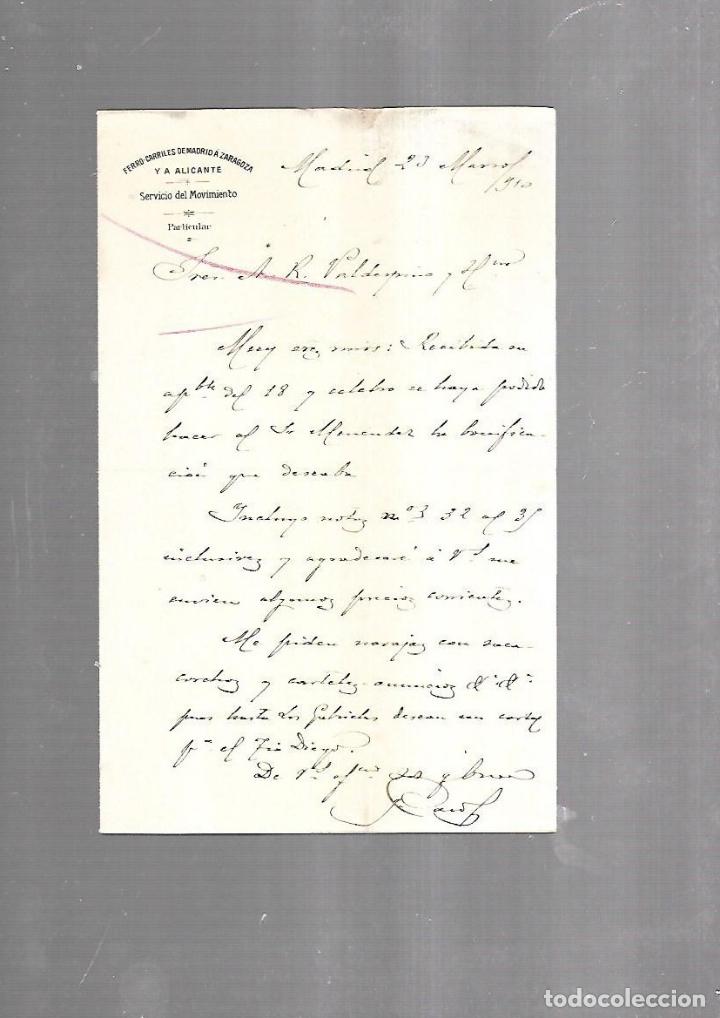 FERRO-CARRILES DE MADRID Á ZARAGOZA
Y A ALICANTE
Servicio del Movimiento
Particular
Madrid 23 Marzo
910
Sres. A. R. Valdespino y Hno
Muy sres mios: Recibida su
apble del 18 y celebro se haya podido
hacer al Sr Menendez la bonifica-
ción que deseaba
Incluyo notas nos 32 al 35
inclusives y agradeceré á Vs. me
envien algunos precios corrientes.
Me piden navajas con saca-
corchos y carteles-anuncios &a &a
pues hasta Los Gabrieles desean un cartel
pa el Tio Diego.
De Vs. afmo ss y buen
todocoleccion
todocoleccion.net